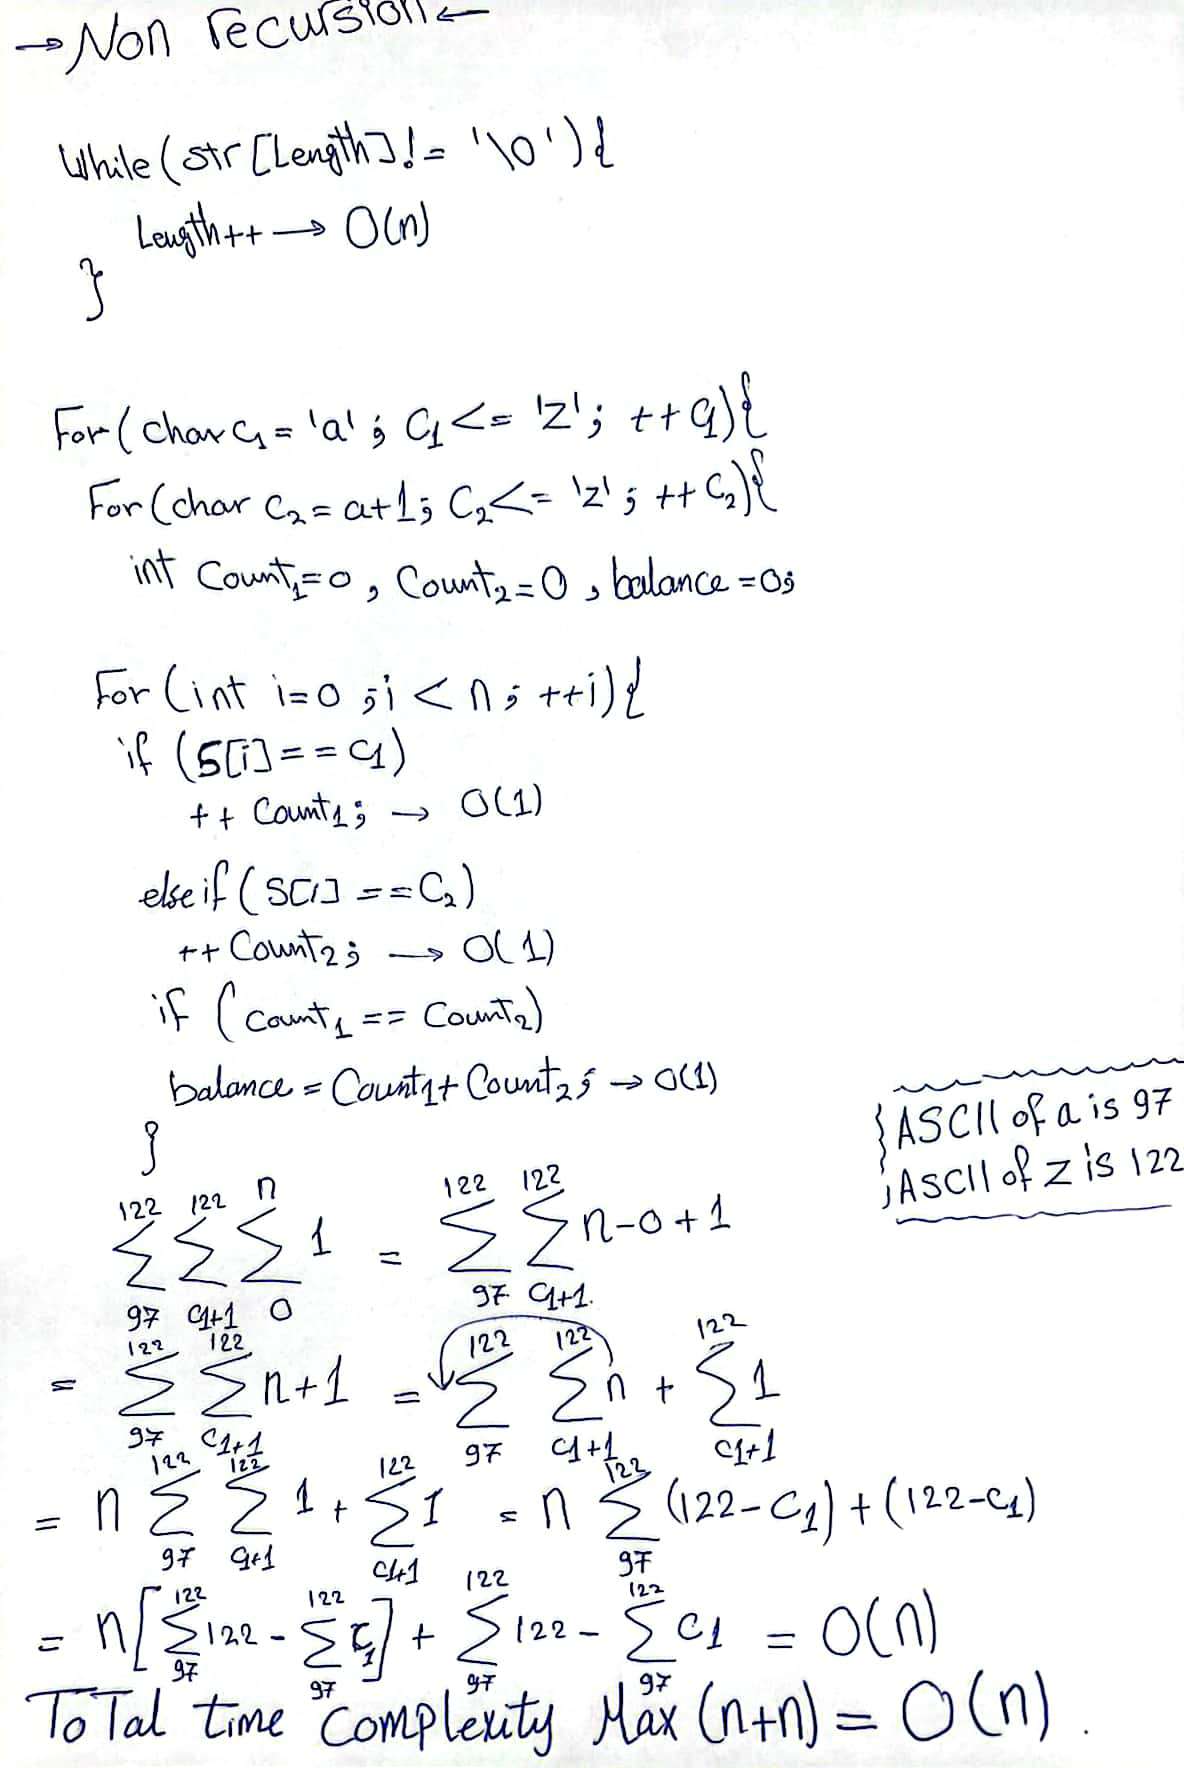 → Non recursion ←
While (str [Length] != '\0') {
Length++ → O(n)
}
For (char C1 = 'a' ; C1 <= 'z' ; ++ C1) {
For (char C2 = a+1 ; C2 <= 'z' ; ++ C2) {
int Count1 = 0 , Count2 = 0 , balance = 0;
For (int i=0 ; i < n ; ++i) {
if (S[i] == C1)
++ Count1 ; → O(1)
else if (S[i] == C2)
++ Count2 ; → O(1)
if (Count1 == Count2)
balance = Count1 + Count2 ; → O(1)
}
ASCII of a is 97
ASCII of z is 122
∑_{97}^{122} ∑_{C1+1}^{122} ∑_{0}^{n} 1 = ∑_{97}^{122} ∑_{C1+1}^{122} n-0+1
= ∑_{97}^{122} ∑_{C1+1}^{122} n+1 = ∑_{97}^{122} ∑_{C1+1}^{122} n + ∑_{C1+1}^{122} 1
= n ∑_{97}^{122} ∑_{C1+1}^{122} 1 + ∑_{C1+1}^{122} 1 = n ∑_{97}^{122} (122-C1) + (122-C1)
= n [ ∑_{97}^{122} 122 - ∑_{97}^{122} C1 ] + ∑_{97}^{122} 122 - ∑_{97}^{122} C1 = O(n)
ToTal time complexity Max (n+n) = O(n) .